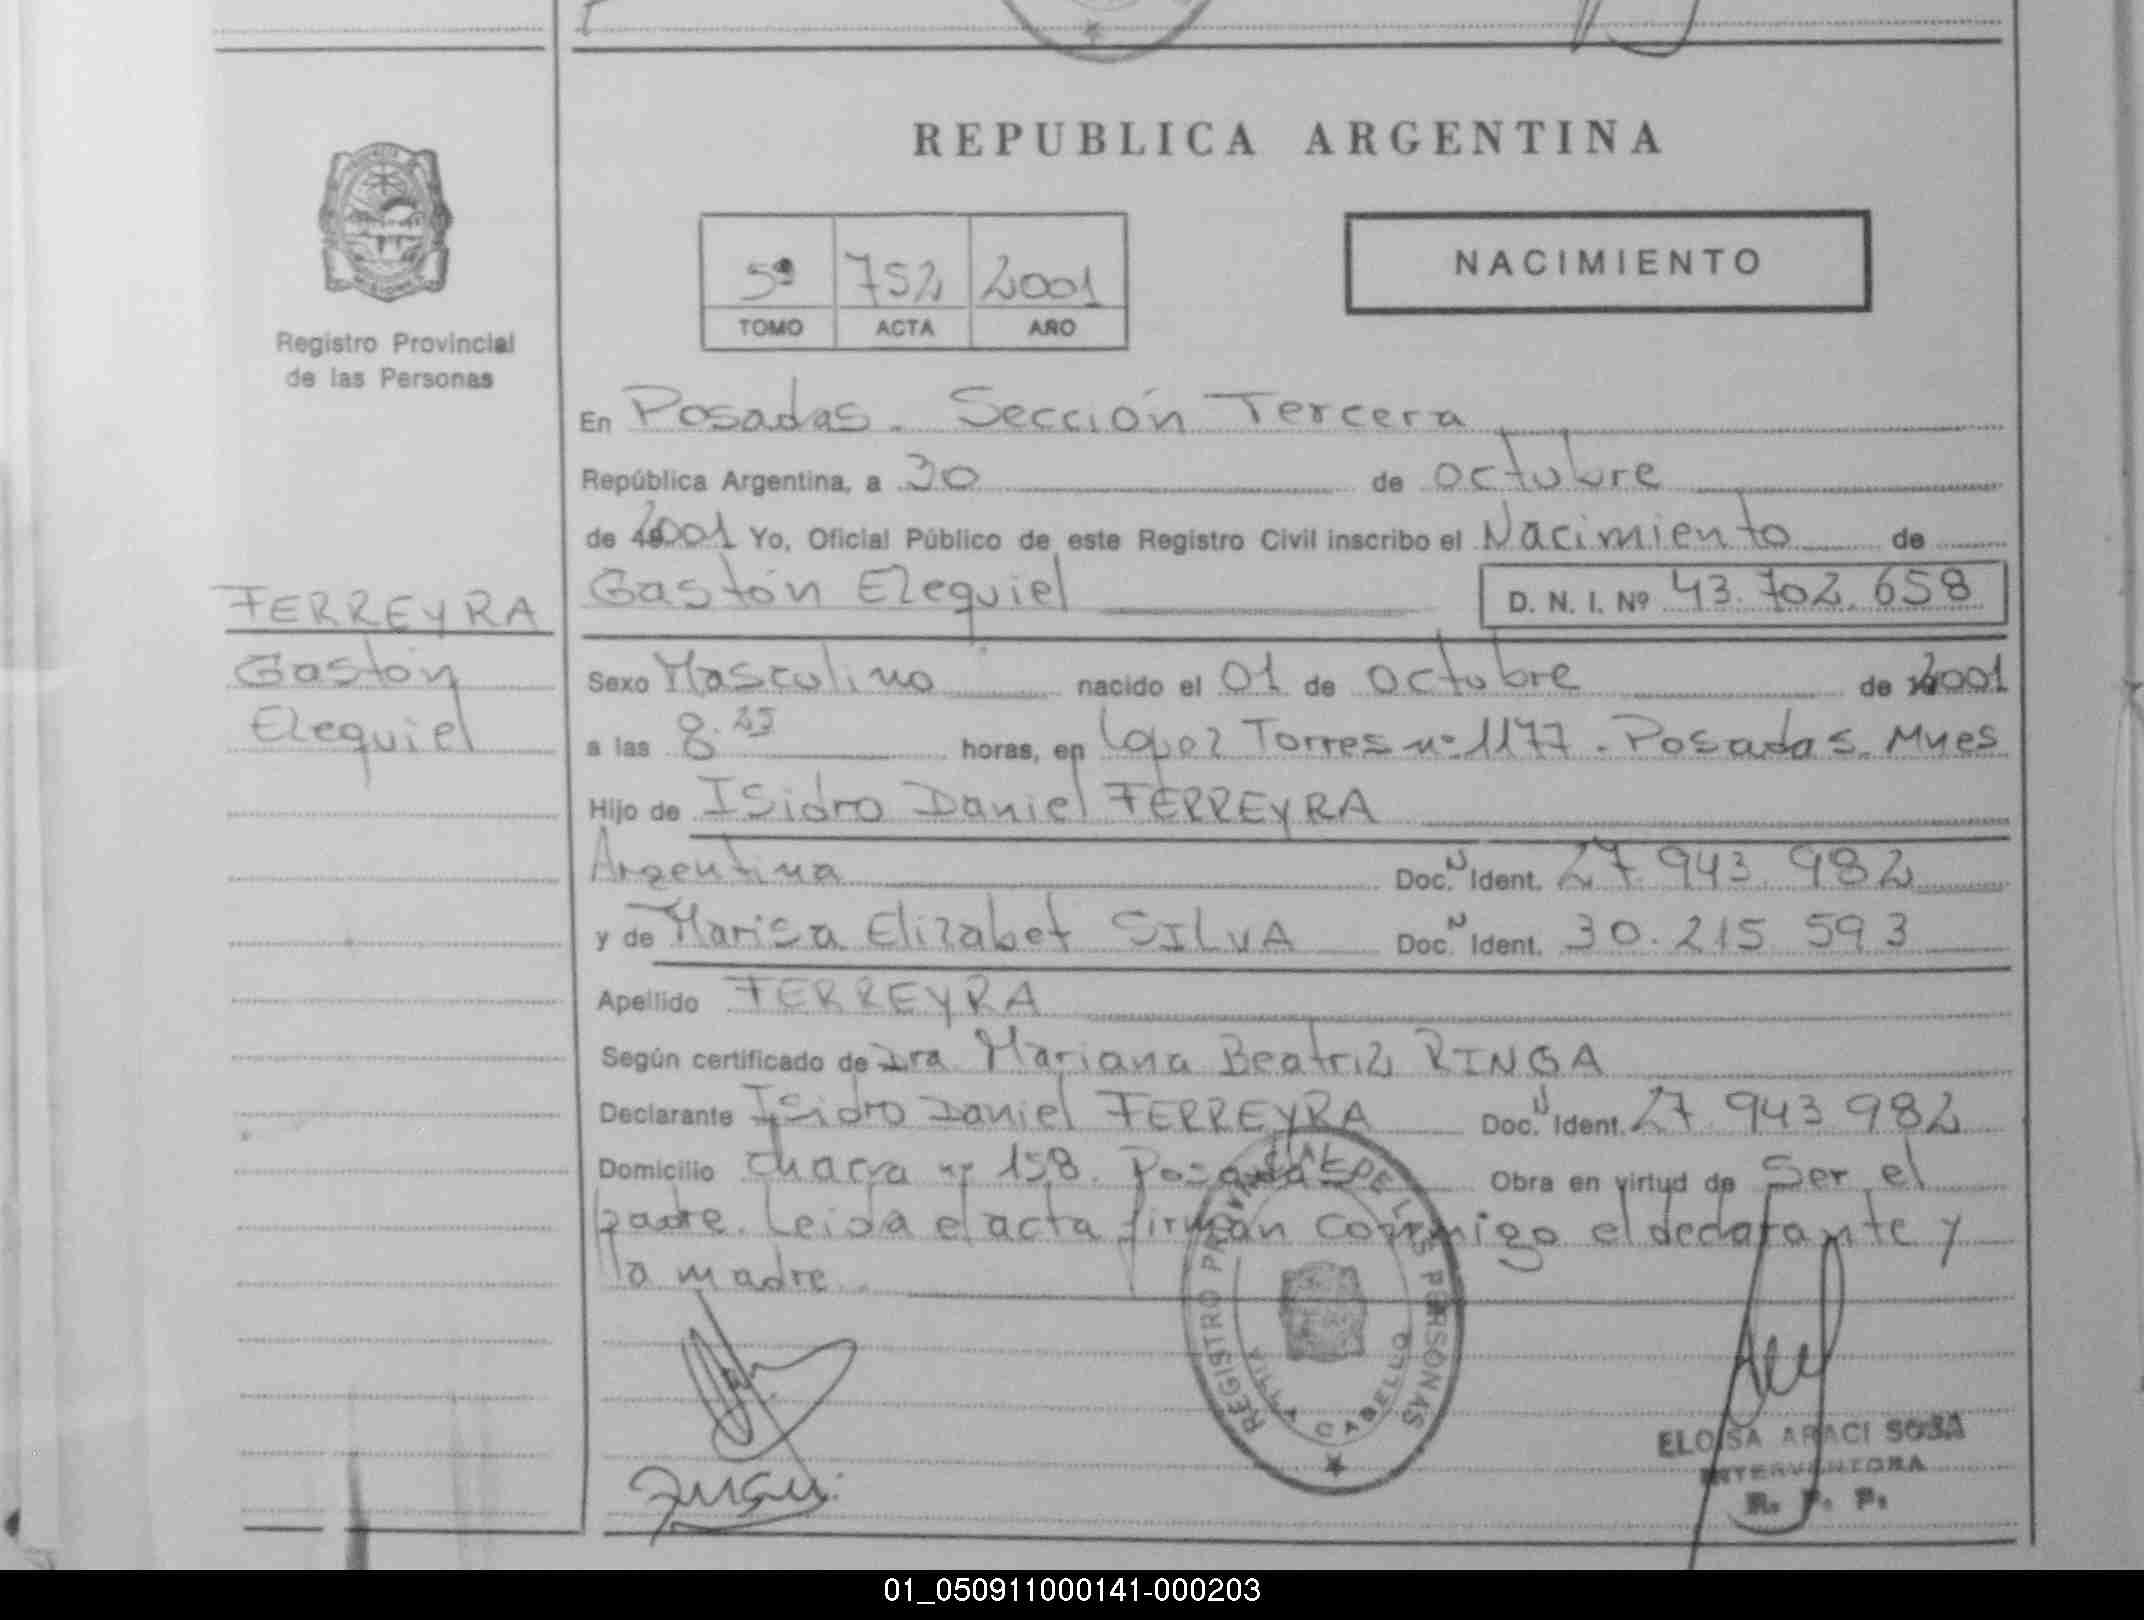 REPUBLICA ARGENTINA
5º 752 2001
TOMO ACTA AÑO
NACIMIENTO
Registro Provincial
de las Personas
En Posadas. Sección Tercera
República Argentina, a 30 de octubre
de 2001 Yo, Oficial Público de este Registro Civil inscribo el Nacimiento de
FERREYRA
Gastón
Ezequiel
Gastón Ezequiel D. N. I. Nº 43.702.658
Sexo Masculino nacido el 01 de octubre de 2001
a las 8.25 horas, en Lopez Torres nº 1177. Posadas. Mnes
Hijo de Isidro Daniel FERREYRA
Argentina Doc. N Ident. 27.943.982
y de Marisa Elizabet SILVA Doc. N Ident. 30.215.593
Apellido FERREYRA
Según certificado de Dra Mariana Beatriz RINGA
Declarante Isidro Daniel FERREYRA Doc. N Ident. 27.943.982
Domicilio chacra nº 158. Posadas Obra en virtud de Ser el
padre. Leida el acta firman conmigo el declarante y
la madre.
REGISTRO PROVINCIAL DE LAS PERSONAS
VILLA CABELLO
ELOISA ARACI SOSA
INTERVENTORA
R. P. P.
01_050911000141-000203